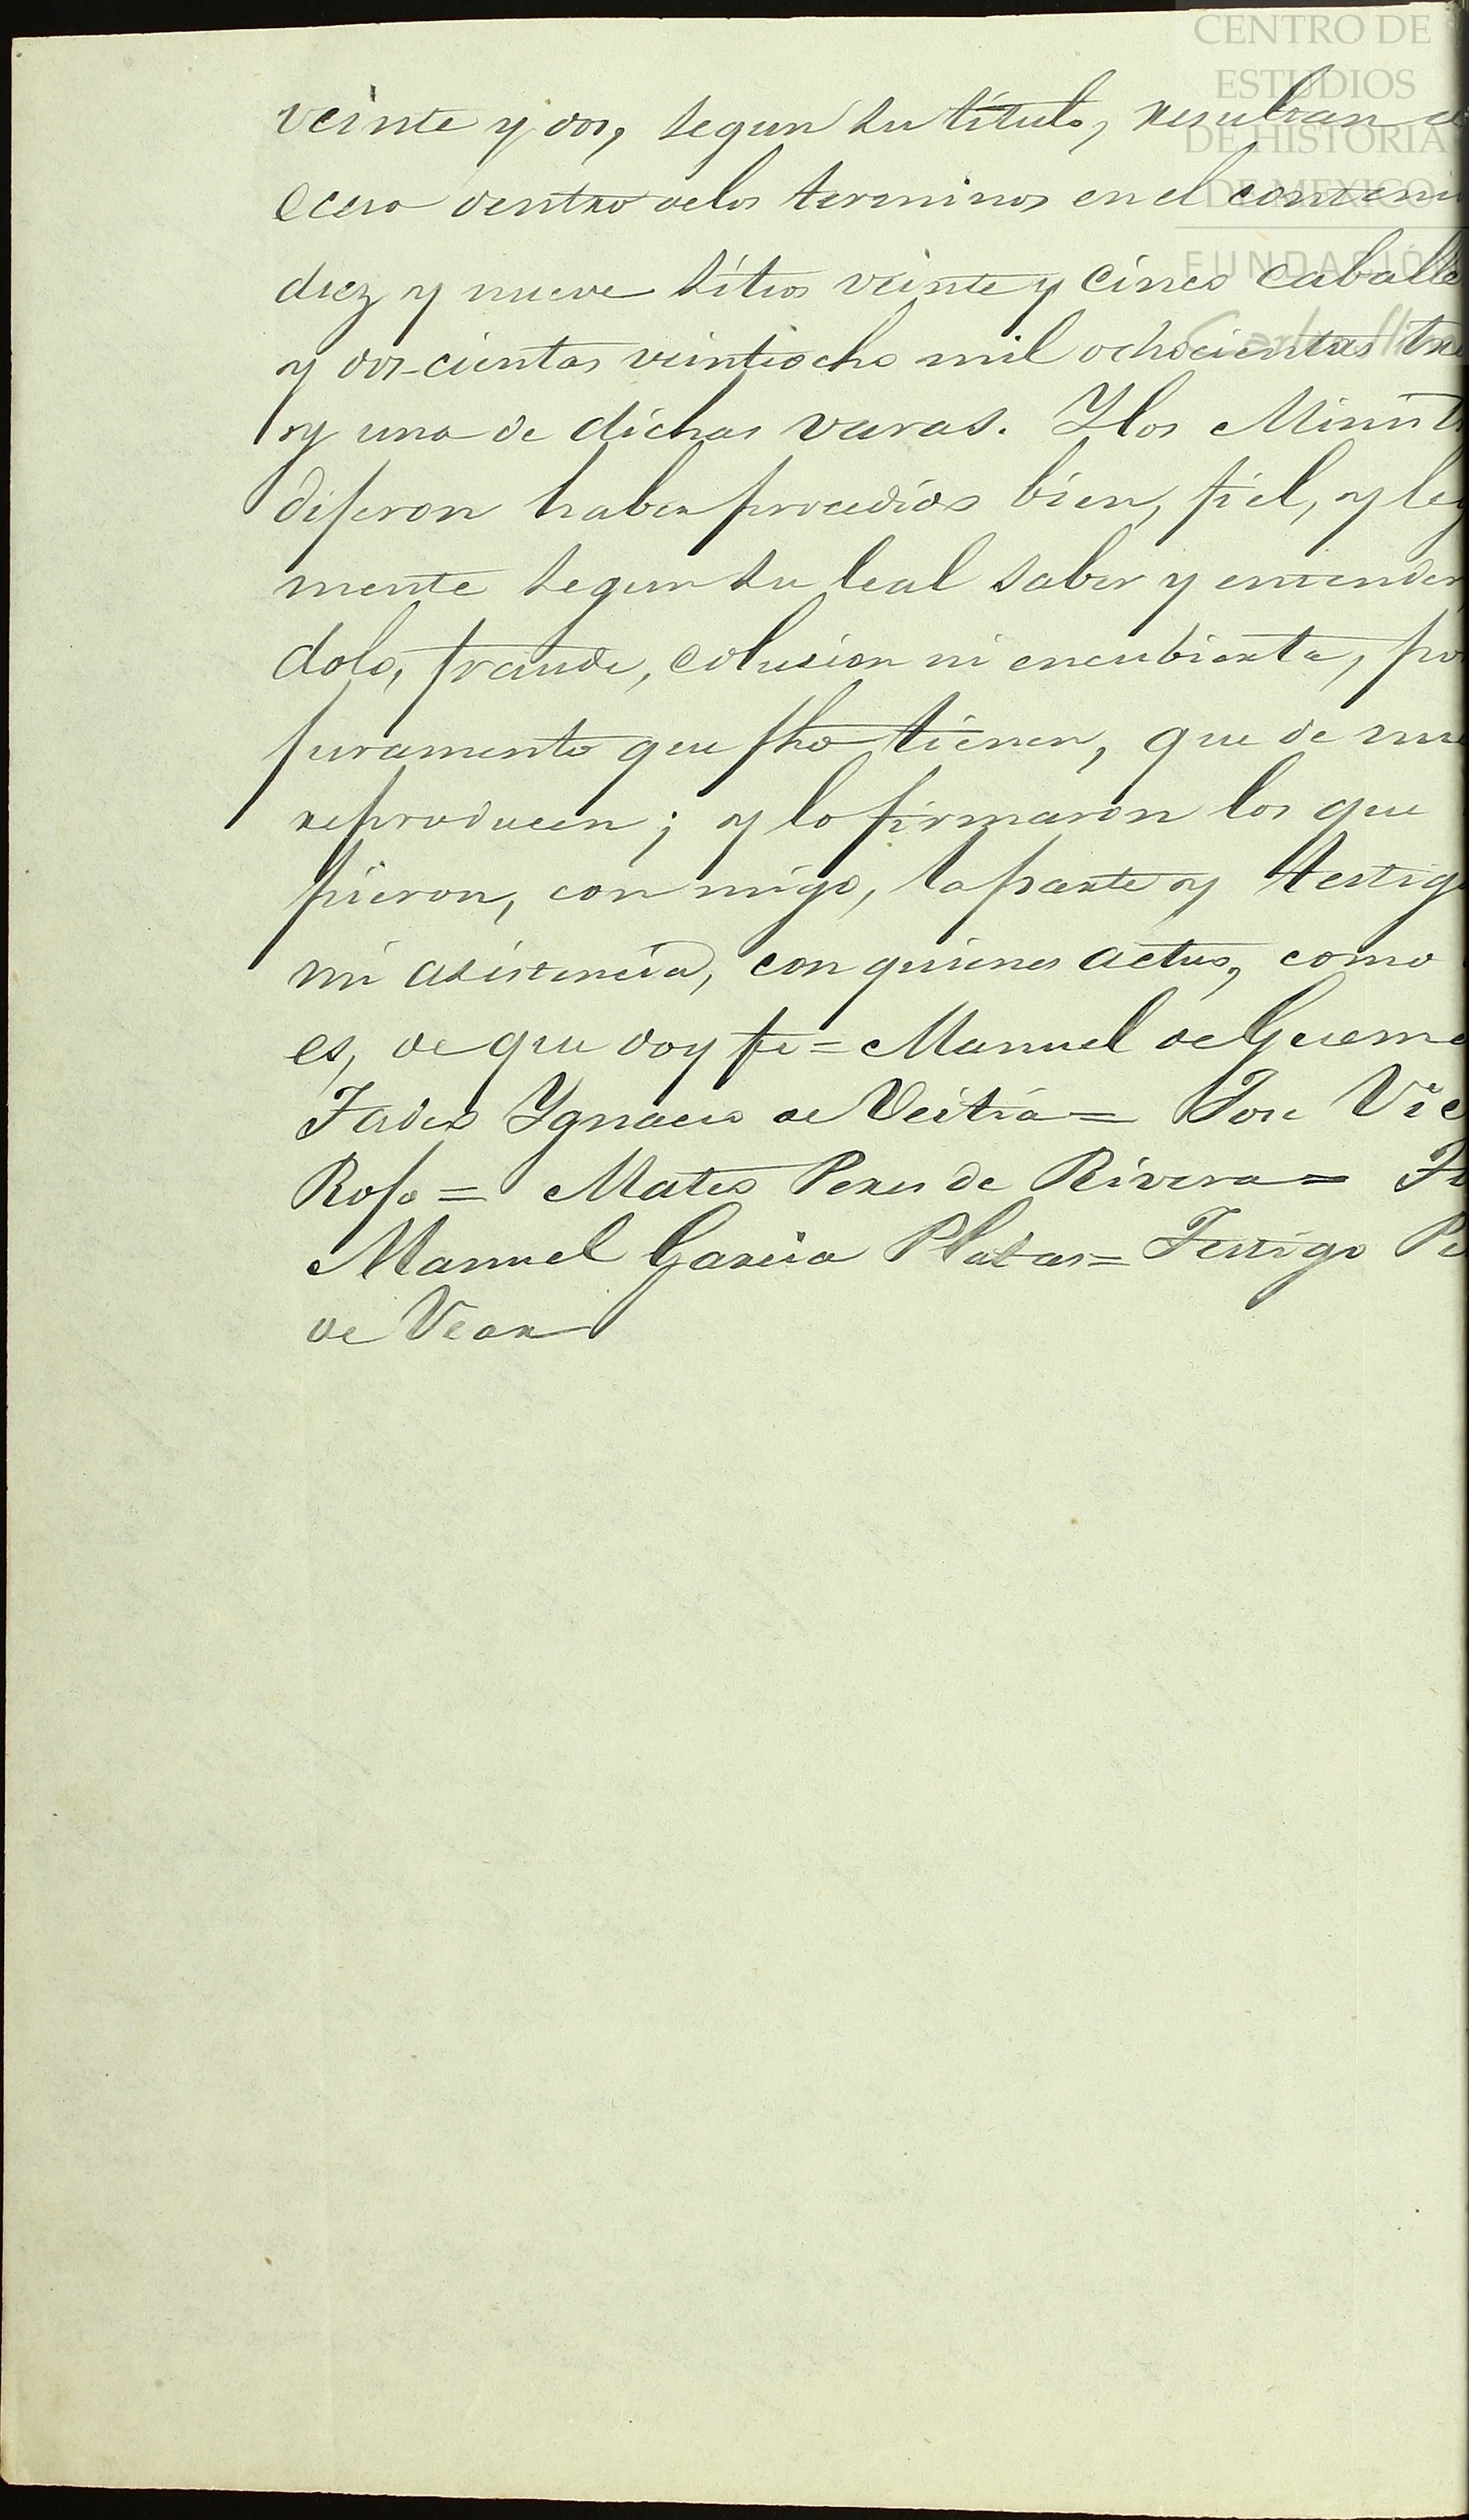 CENTRO DE
ESTUDIOS
DE HISTORIA
DE MEXICO
FUNDACIÓ
veinte y dos, segun su titulo, resultan
dentro delos terminos en el conteni
diez y nueve sitios veinte y cinco caballe
y dos-cientas veintiocho mil ochocientas tre
y una de dichas varas. Y los Minist
dijeron haber procedido bien, fiel, y leg
mente segun su leal saber y entender
dolo, fraude, colusion ni encubierta, por
juramento que fho tienen, que de nue
reproducen; y lo firmaron los que
pieron, con migo, la parte y testig
mi asistencia, con quienes actuo, como
es, de que doy fe = Manuel de Gueme
Ygnacio de Veitia = Jose Vic
Rojo = Mateo Peres de Rivera = Fr
Manuel Garcia Platas = Testigo Pe
de Vear